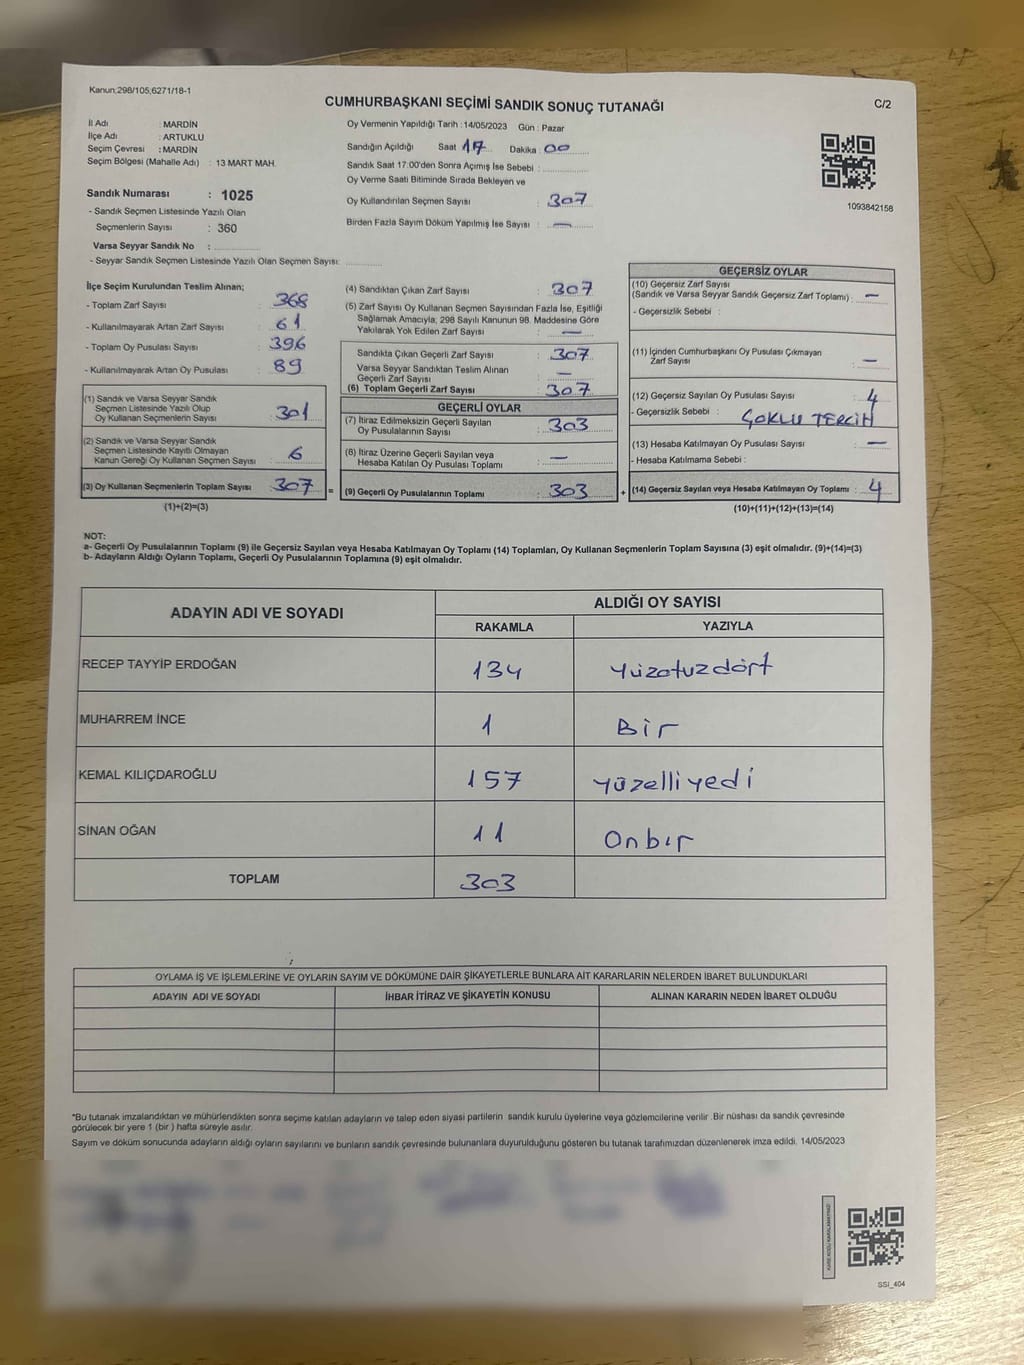 Kanun;298/105;6271/18-1
CUMHURBAŞKANI SEÇİMİ SANDIK SONUÇ TUTANAĞI
C/2
İl Adı : MARDİN
İlçe Adı : ARTUKLU
Seçim Çevresi : MARDİN
Seçim Bölgesi (Mahalle Adı) : 13 MART MAH.
Sandık Numarası : 1025
- Sandık Seçmen Listesinde Yazılı Olan
Seçmenlerin Sayısı : 360
Varsa Seyyar Sandık No :
- Seyyar Sandık Seçmen Listesinde Yazılı Olan Seçmen Sayısı:
Oy Vermenin Yapıldığı Tarih : 14/05/2023 Gün : Pazar
Sandığın Açıldığı Saat 17 Dakika : 00
Sandık Saat 17:00'den Sonra Açımış İse Sebebi :
Oy Verme Saati Bitiminde Sırada Bekleyen ve
Oy Kullandırılan Seçmen Sayısı : 307
Birden Fazla Sayım Döküm Yapılmış İse Sayısı : —
1093842158
İlçe Seçim Kurulundan Teslim Alınan;
- Toplam Zarf Sayısı : 368
- Kullanılmayarak Artan Zarf Sayısı : 61
- Toplam Oy Pusulası Sayısı : 396
- Kullanılmayarak Artan Oy Pusulası : 89
(1) Sandık ve Varsa Seyyar Sandık
Seçmen Listesinde Yazılı Olup
Oy Kullanan Seçmenlerin Sayısı : 301
(2) Sandık ve Varsa Seyyar Sandık
Seçmen Listesinde Kayıtlı Olmayan
Kanun Gereği Oy Kullanan Seçmen Sayısı : 6
(3) Oy Kullanan Seçmenlerin Toplam Sayısı : 307 =
(1)+(2)=(3)
(4) Sandıktan Çıkan Zarf Sayısı : 307
(5) Zarf Sayısı Oy Kullanan Seçmen Sayısından Fazla İse, Eşitliği
Sağlamak Amacıyla, 298 Sayılı Kanunun 98. Maddesine Göre
Yakılarak Yok Edilen Zarf Sayısı : —
Sandıkta Çıkan Geçerli Zarf Sayısı : 307
Varsa Seyyar Sandıktan Teslim Alınan
Geçerli Zarf Sayısı : —
(6) Toplam Geçerli Zarf Sayısı : 307
GEÇERLİ OYLAR
(7) İtiraz Edilmeksizin Geçerli Sayılan
Oy Pusulalarının Sayısı : 303
(8) İtiraz Üzerine Geçerli Sayılan veya
Hesaba Katılan Oy Pusulası Toplamı : —
(9) Geçerli Oy Pusulalarının Toplamı : 303 +
GEÇERSİZ OYLAR
(10) Geçersiz Zarf Sayısı
(Sandık ve Varsa Seyyar Sandık Geçersiz Zarf Toplamı) : —
- Geçersizlik Sebebi :
(11) İçinden Cumhurbaşkanı Oy Pusulası Çıkmayan
Zarf Sayısı : —
(12) Geçersiz Sayılan Oy Pusulası Sayısı : 4
- Geçersizlik Sebebi : ÇOKLU TERCİH
(13) Hesaba Katılmayan Oy Pusulası Sayısı : —
- Hesaba Katılmama Sebebi :
(14) Geçersiz Sayılan veya Hesaba Katılmayan Oy Toplamı : 4
(10)+(11)+(12)+(13)=(14)
NOT:
a- Geçerli Oy Pusulalarının Toplamı (9) ile Geçersiz Sayılan veya Hesaba Katılmayan Oy Toplamı (14) Toplamları, Oy Kullanan Seçmenlerin Toplam Sayısına (3) eşit olmalıdır. (9)+(14)=(3)
b- Adayların Aldığı Oyların Toplamı, Geçerli Oy Pusulalarının Toplamına (9) eşit olmalıdır.
ADAYIN ADI VE SOYADI ALDIĞI OY SAYISI
RAKAMLA YAZIYLA
RECEP TAYYİP ERDOĞAN 134 Yüzotuzdört
MUHARREM İNCE 1 Bir
KEMAL KILIÇDAROĞLU 157 yüzelliyedi
SİNAN OĞAN 11 Onbır
TOPLAM 303
OYLAMA İŞ VE İŞLEMLERİNE VE OYLARIN SAYIM VE DÖKÜMÜNE DAİR ŞİKAYETLERLE BUNLARA AİT KARARLARIN NELERDEN İBARET BULUNDUKLARI
ADAYIN ADI VE SOYADI İHBAR İTİRAZ VE ŞİKAYETİN KONUSU ALINAN KARARIN NEDEN İBARET OLDUĞU
*Bu tutanak imzalandıktan ve mühürlendikten sonra seçime katılan adayların ve talep eden siyasi partilerin sandık kurulu üyelerine veya gözlemcilerine verilir .Bir nüshası da sandık çevresinde
görülecek bir yere 1 (bir ) hafta süreyle asılır.
Sayım ve döküm sonucunda adayların aldığı oyların sayılarını ve bunların sandık çevresinde bulunanlara duyurulduğunu gösteren bu tutanak tarafımızdan düzenlenerek imza edildi. 14/05/2023
SSI_404